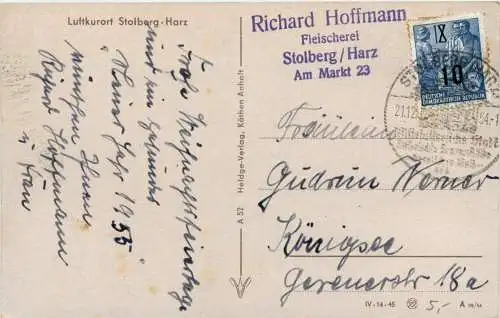 Luftkurort Stolberg-Harz
Frohe Weihnachtsfeiertage
und ein gesundes
"Neues Jahr 1955"
wünschen Ihnen
Richard Hoffmann
u. Frau
Heldge-Verlag, Köthen Anhalt
A 52
Richard Hoffmann
Fleischerei
Stolberg/Harz
Am Markt 23
IX
10
DEUTSCHE
DEMOKRATISCHE REPUBLIK
STOLBERG (HARZ)
21.12. 54-1
Fräulein
Gudrun Werner
Königsee
Gerenerstr 18a
IV-14-45 5,- A